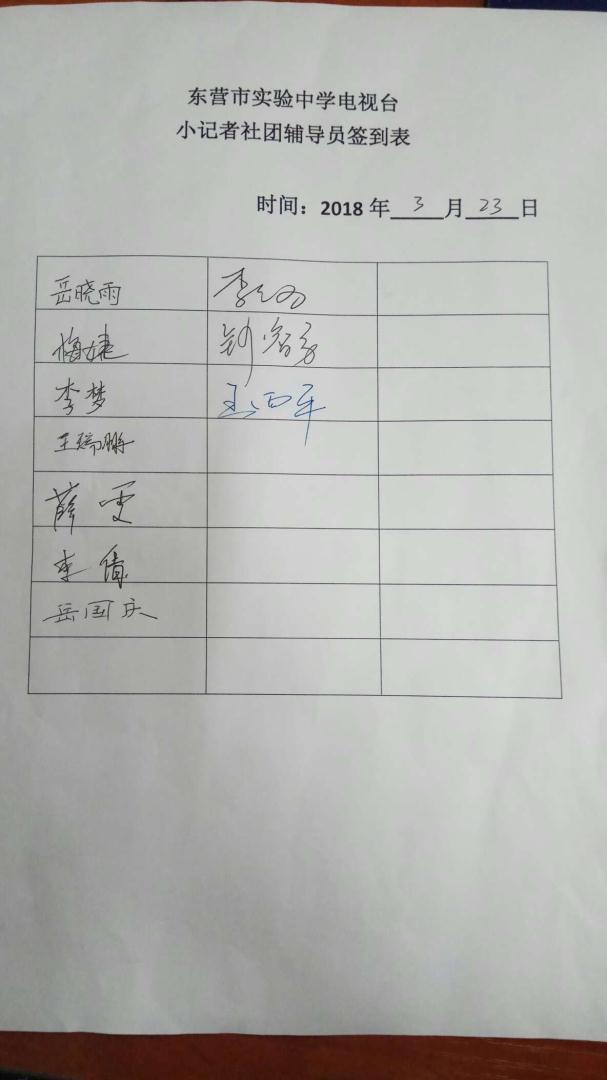 东营市实验中学电视台
小记者社团辅导员签到表
时间：2018 年 3 月 23 日
岳晓雨
梅婕
李梦
王瑞鹏
薛雯
李倩
岳国庆